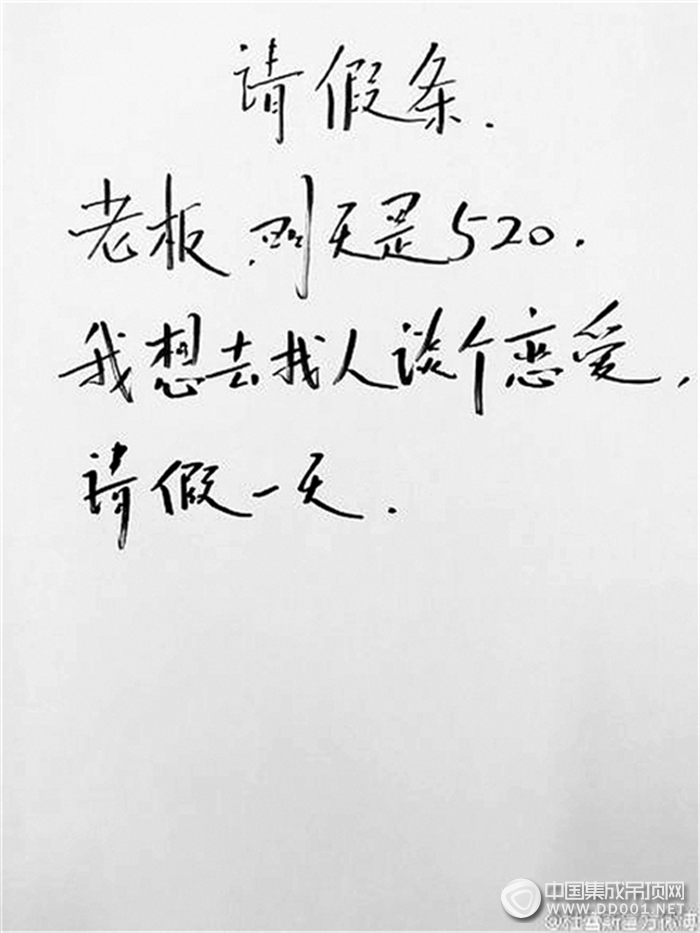 请假条.
老板,明天是520.
我想去找人谈个恋爱,
请假一天.
中国集成吊顶网
WWW.DD001.NET